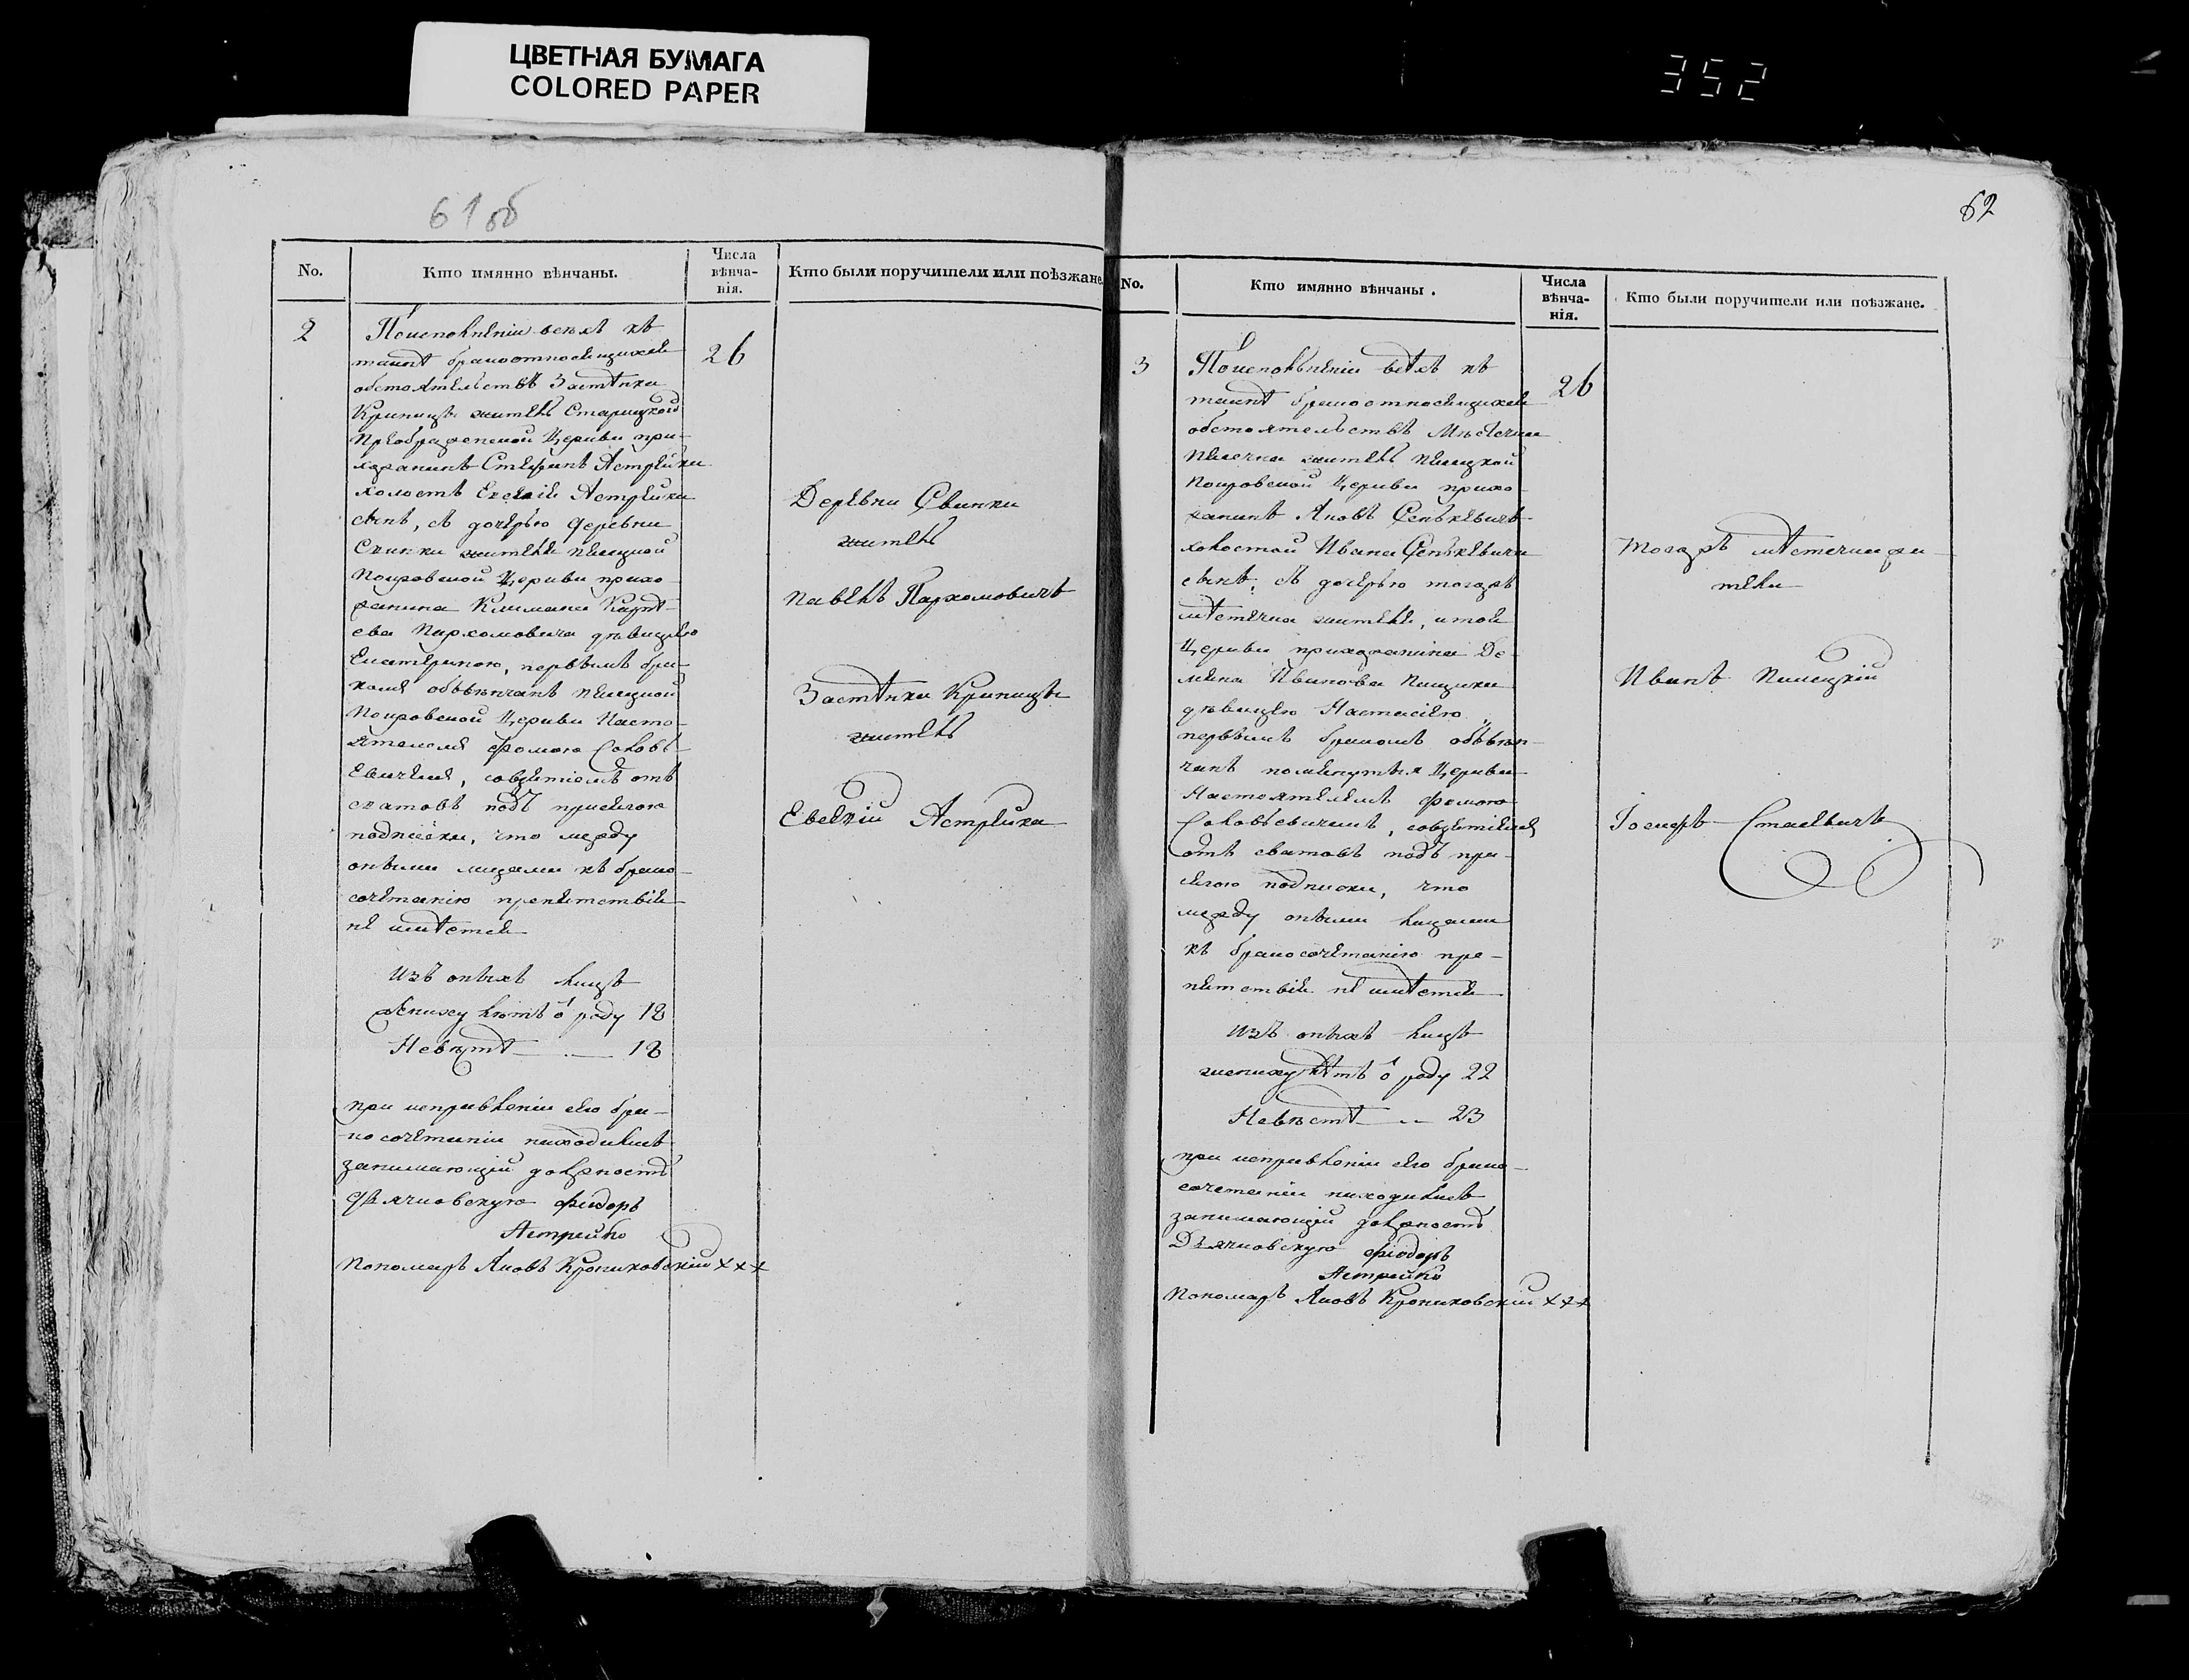 ЦВЕТНАЯ БУМАГА
COLORED PAPER
352
61 об
No.
Кто имянно вѣнчаны.
Числа
вѣнча-
нія.
Кто были поручители или поѣзжане.
2
По исполненіи всѣхъ къ
таинѣ бракоотносящихся
обстоятельствъ Застѣнка
Криницъ житель Старицкой
Преображенской Церкви при-
хожанинъ Стефанъ Астрейки
холостъ Евсѣіи Астрейки
сынъ, съ дочерью деревни
Свинки жителя
Покровской Церкви прихо-
жанина Климента
ева Пархомовича дѣвицею
Екатериною, первымъ бра-
комъ обвѣнчанъ
Покровской Церкви Насто-
ятелемъ Фомою Соловь-
евичемъ, совзятіемъ отъ
сватовъ подъ присягою
подписки, что между
оными лицами къ брако-
сочетанію препятствія
не имѣется
Изъ оныхъ лицъ
жениху лѣтъ о роду 18
Невѣстѣ 18
при исправленіи сего бра-
косочетанія находился
занимающій должность
Дьячковскую Фіодоръ
Астрейко
Пономарь Яковъ Крониковскій ххх
26
Деревни Свинки
житель
Павелъ Пархомовичъ
Застѣнка Криницъ
житель
Евсѣкій Астрейка
62
No.
Кто имянно вѣнчаны.
Числа
вѣнча-
нія.
Кто были поручители или поѣзжане.
3
По исполненіи всѣхъ къ
таинѣ бракоотносящихся
обстоятельствъ Мѣстечка
житель
Покровской Церкви прихо-
жанинъ Яковъ Сенькевичъ
холостой Ивана Сенькевича
сынъ, съ дочерью тогожъ
мѣстечка жителя, и той
Церкви прихожанина Де-
мяна Иванова
дѣвицею Настасіею
первымъ бракомъ обвѣн-
чанъ помянутыя Церкви
Настоятелемъ Фомою
Соловьевичемъ, совзятіемъ
отъ сватовъ подъ при-
сягою подписки, что
между оными лицами
къ бракосочетанію пре-
пятствія не имѣется
Изъ оныхъ лицъ
жениху лѣтъ о роду 22
Невѣстѣ 23
при исправленіи сего брако-
сочетанія находился
занимающій должность
Дьячковскую Фіодоръ
Астрейко
Пономарь Яковъ Крониковскій ххх
26
Тогожъ мѣстечка жи-
тели
Иванъ
Іосифъ